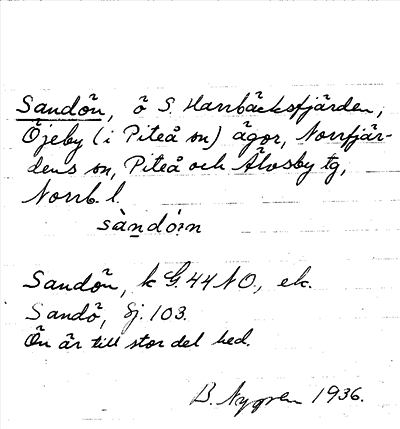 Sandön, ö S. Harrbäcksfjärden,
Öjeby (i Piteå sn) ägor, Norrfjär-
dens sn, Piteå och Älvsby tg,
Norrb. l.
sàndó:n
Sandön, k G. 44 NO, ek.
Sandö, Sj. 103.
Ön är till stor del hed.
B. Nygren 1936.